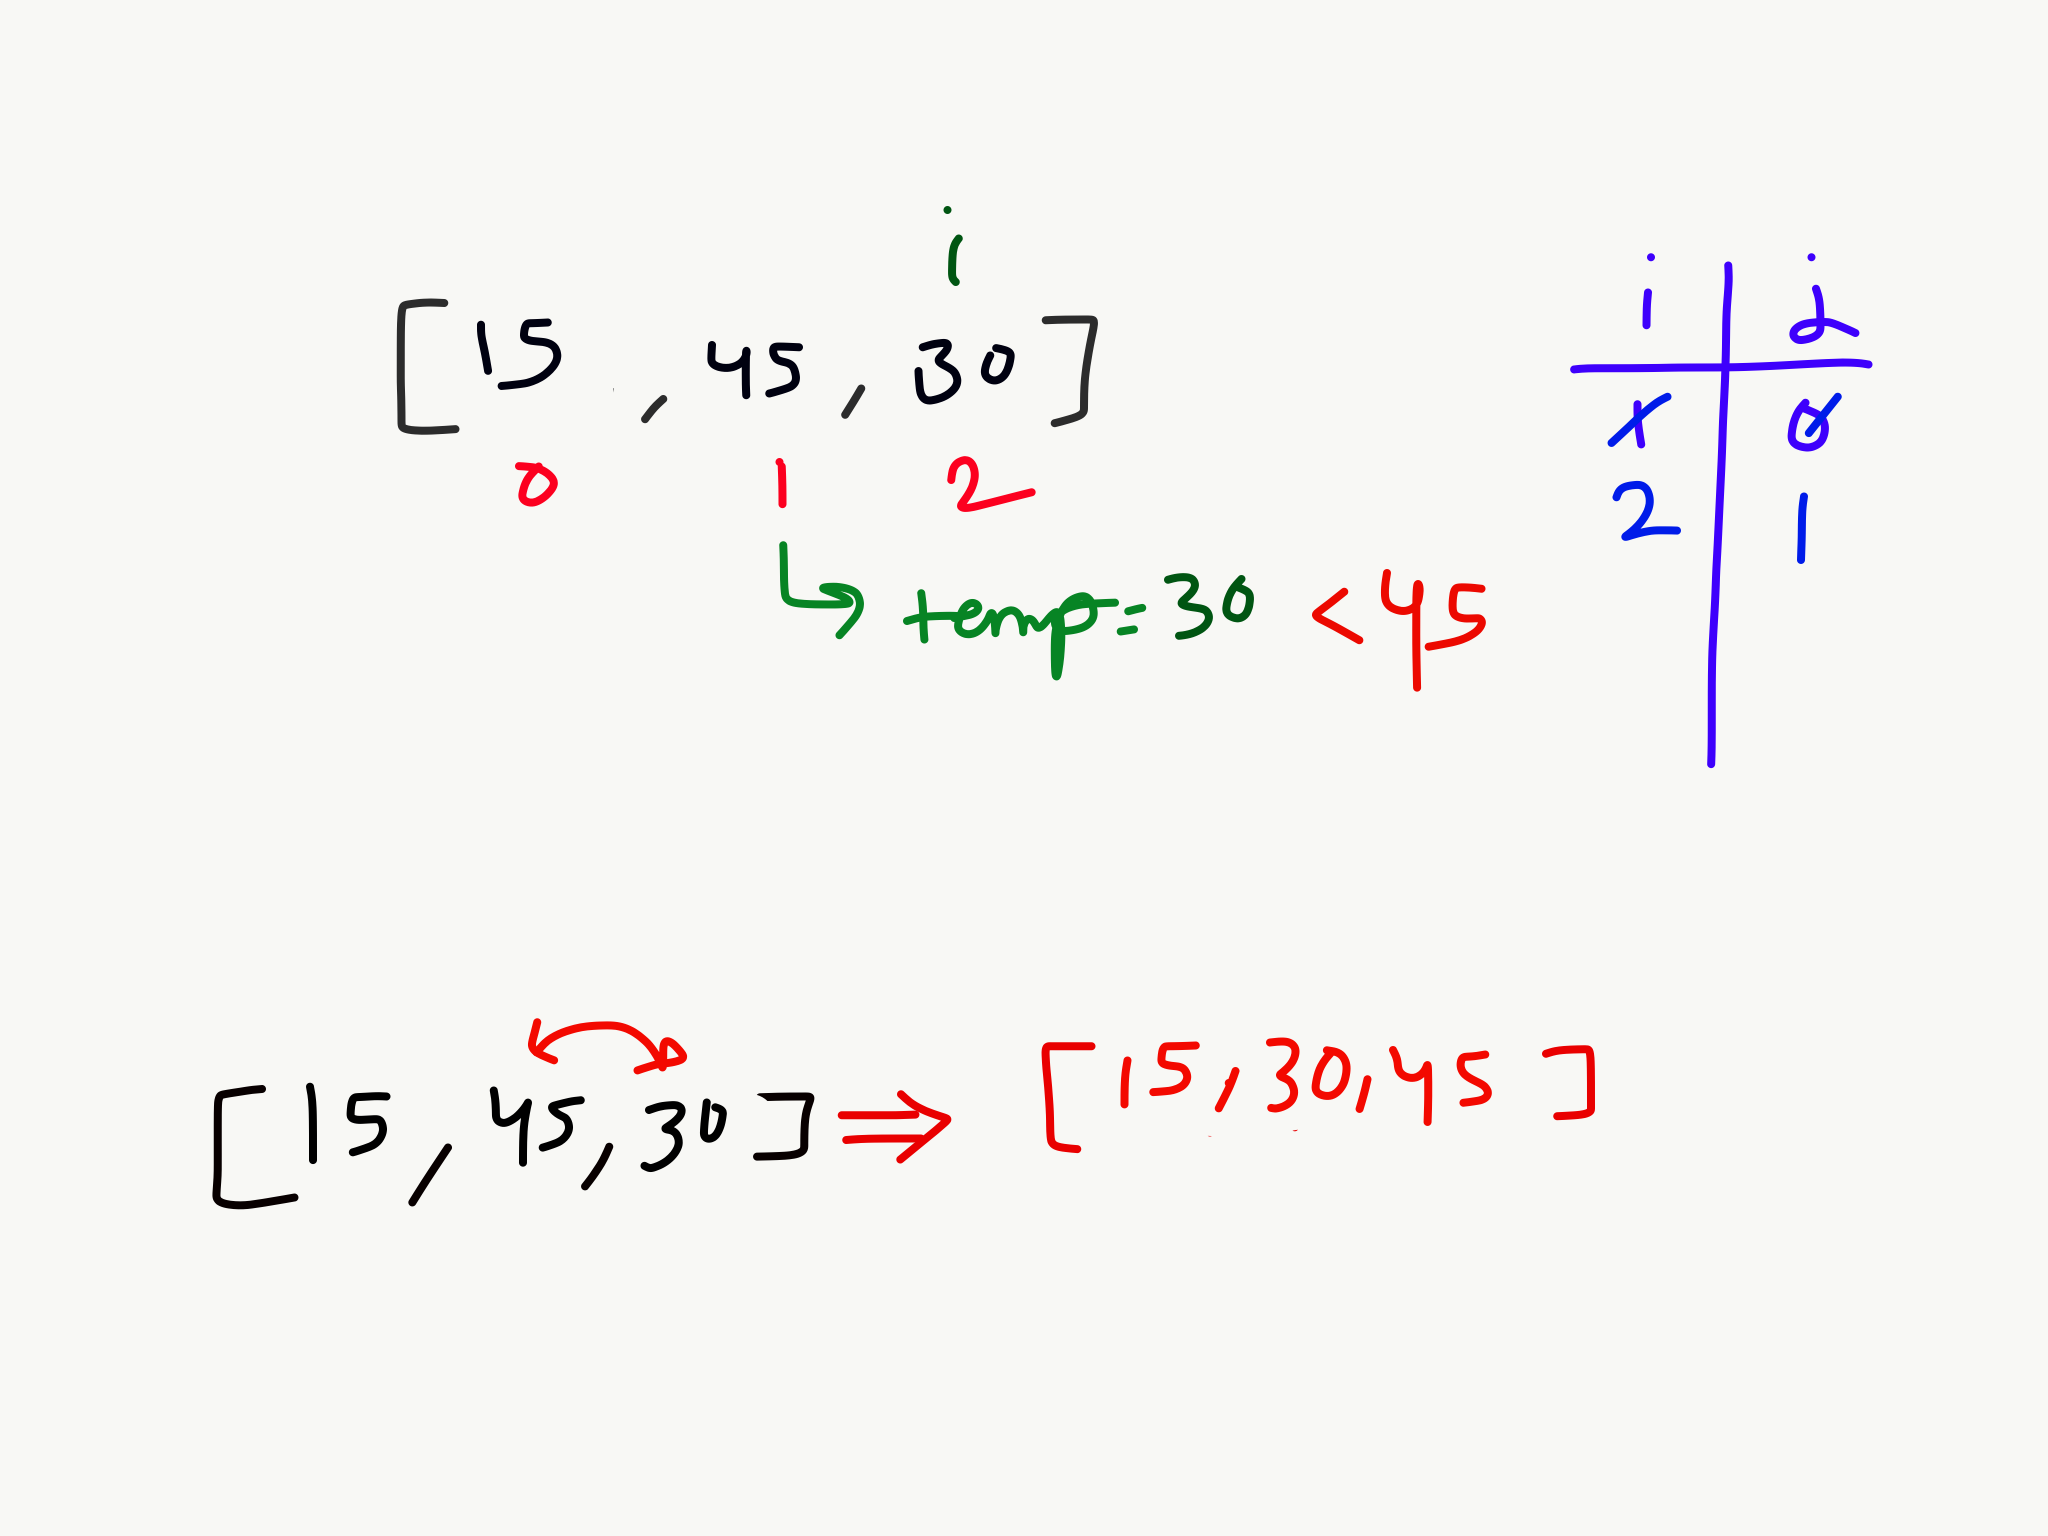 i
[15, 45, 30]
0 1 2
temp = 30 < 45
i j
1 0
2 1
[15, 45, 30] ⇒ [15, 30, 45]